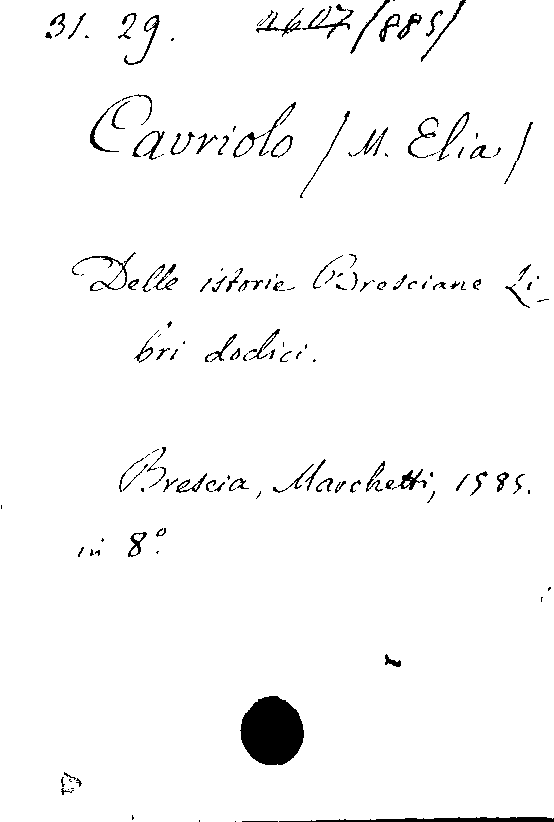 31. 29. 2607/885/
Cavriolo / M. Elia /
Delle istorie Bresciane Li-
bri dodici.
Brescia, Marchetti, 1585.
in 8º.